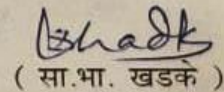 ( सा.भा. खडके )